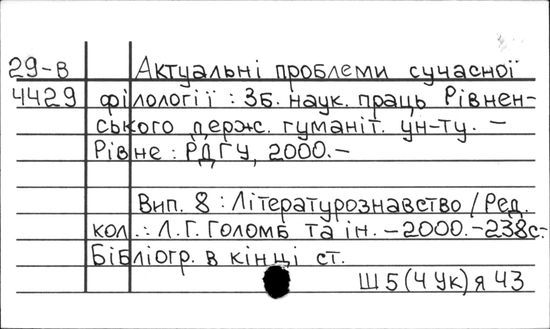 29-В Актуальні проблеми сучасної
4429 філології : Зб. наук. праць Рівнен-
ського держ. гуманіт. ун-ту. –
Рівне : РДГУ, 2000. –
Вип. 8 : Літературознавство / Ред.
кол. : Л. Г. Голомб та ін. – 2000. – 238с.
Бібліогр. в кінці ст.
Ш5(4Ук)я43